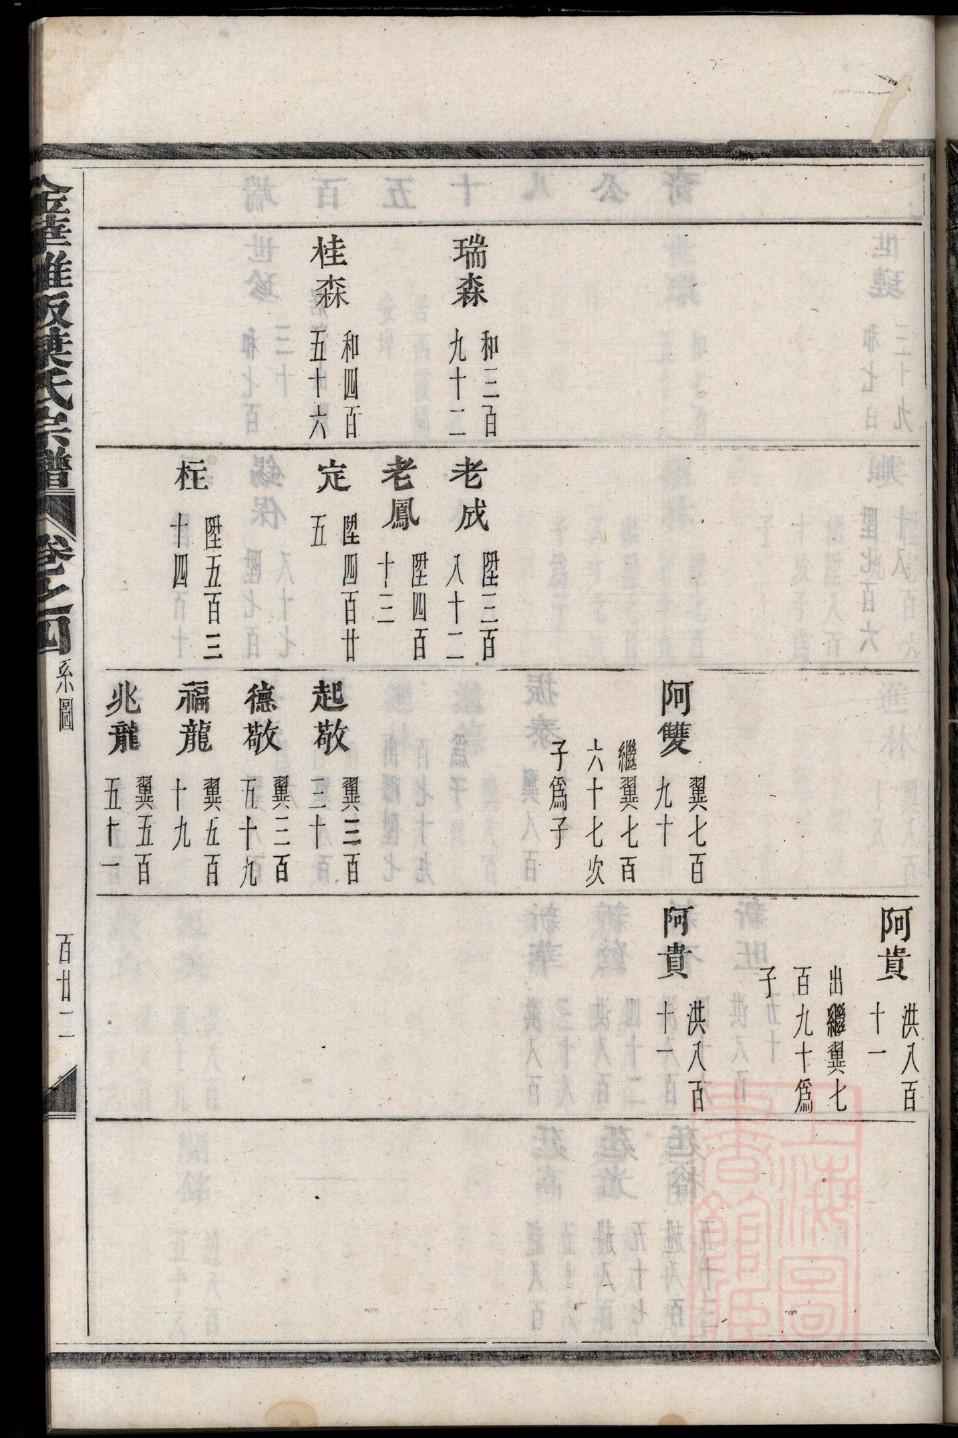 瑞森
和三百
九十二
桂森
和四百
五十六
老成
陞三百
八十二
老鳳
陞四百
十三
定
陞四百廿
五
枉
陞五百三
十四
阿雙
翼七百
九十
繼翼七百
六十七次
子爲子
起敬
翼三百
三十
德敬
翼三百
五十九
福龍
翼五百
十九
兆龍
翼五百
五十一
阿貴
洪八百
十一
出繼翼七
百九十爲
子
阿貴
洪八百
十一
葉氏宗譜
卷之四
系圖
百廿二
上海圖書館藏